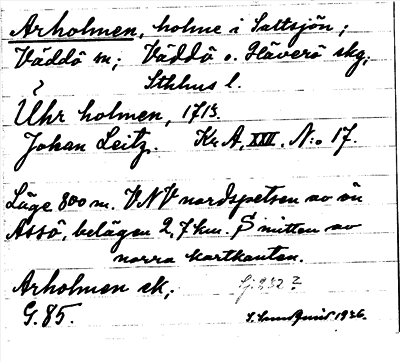 Arholmen, holme i Saltsjön;
Väddö sn; Väddö o. Häverö skg;
Sthlms l.
?
Ühr holmen, 1713.
Johan Leitz. Kr A, XXII. N:o 17.
Läge 800 m. VNV nordspetsen av ön
Assö, belägen 2,7 km. S mitten av
norra kartkanten.
Arholmen ek;
Sj. 232?
G. 85.
1936.